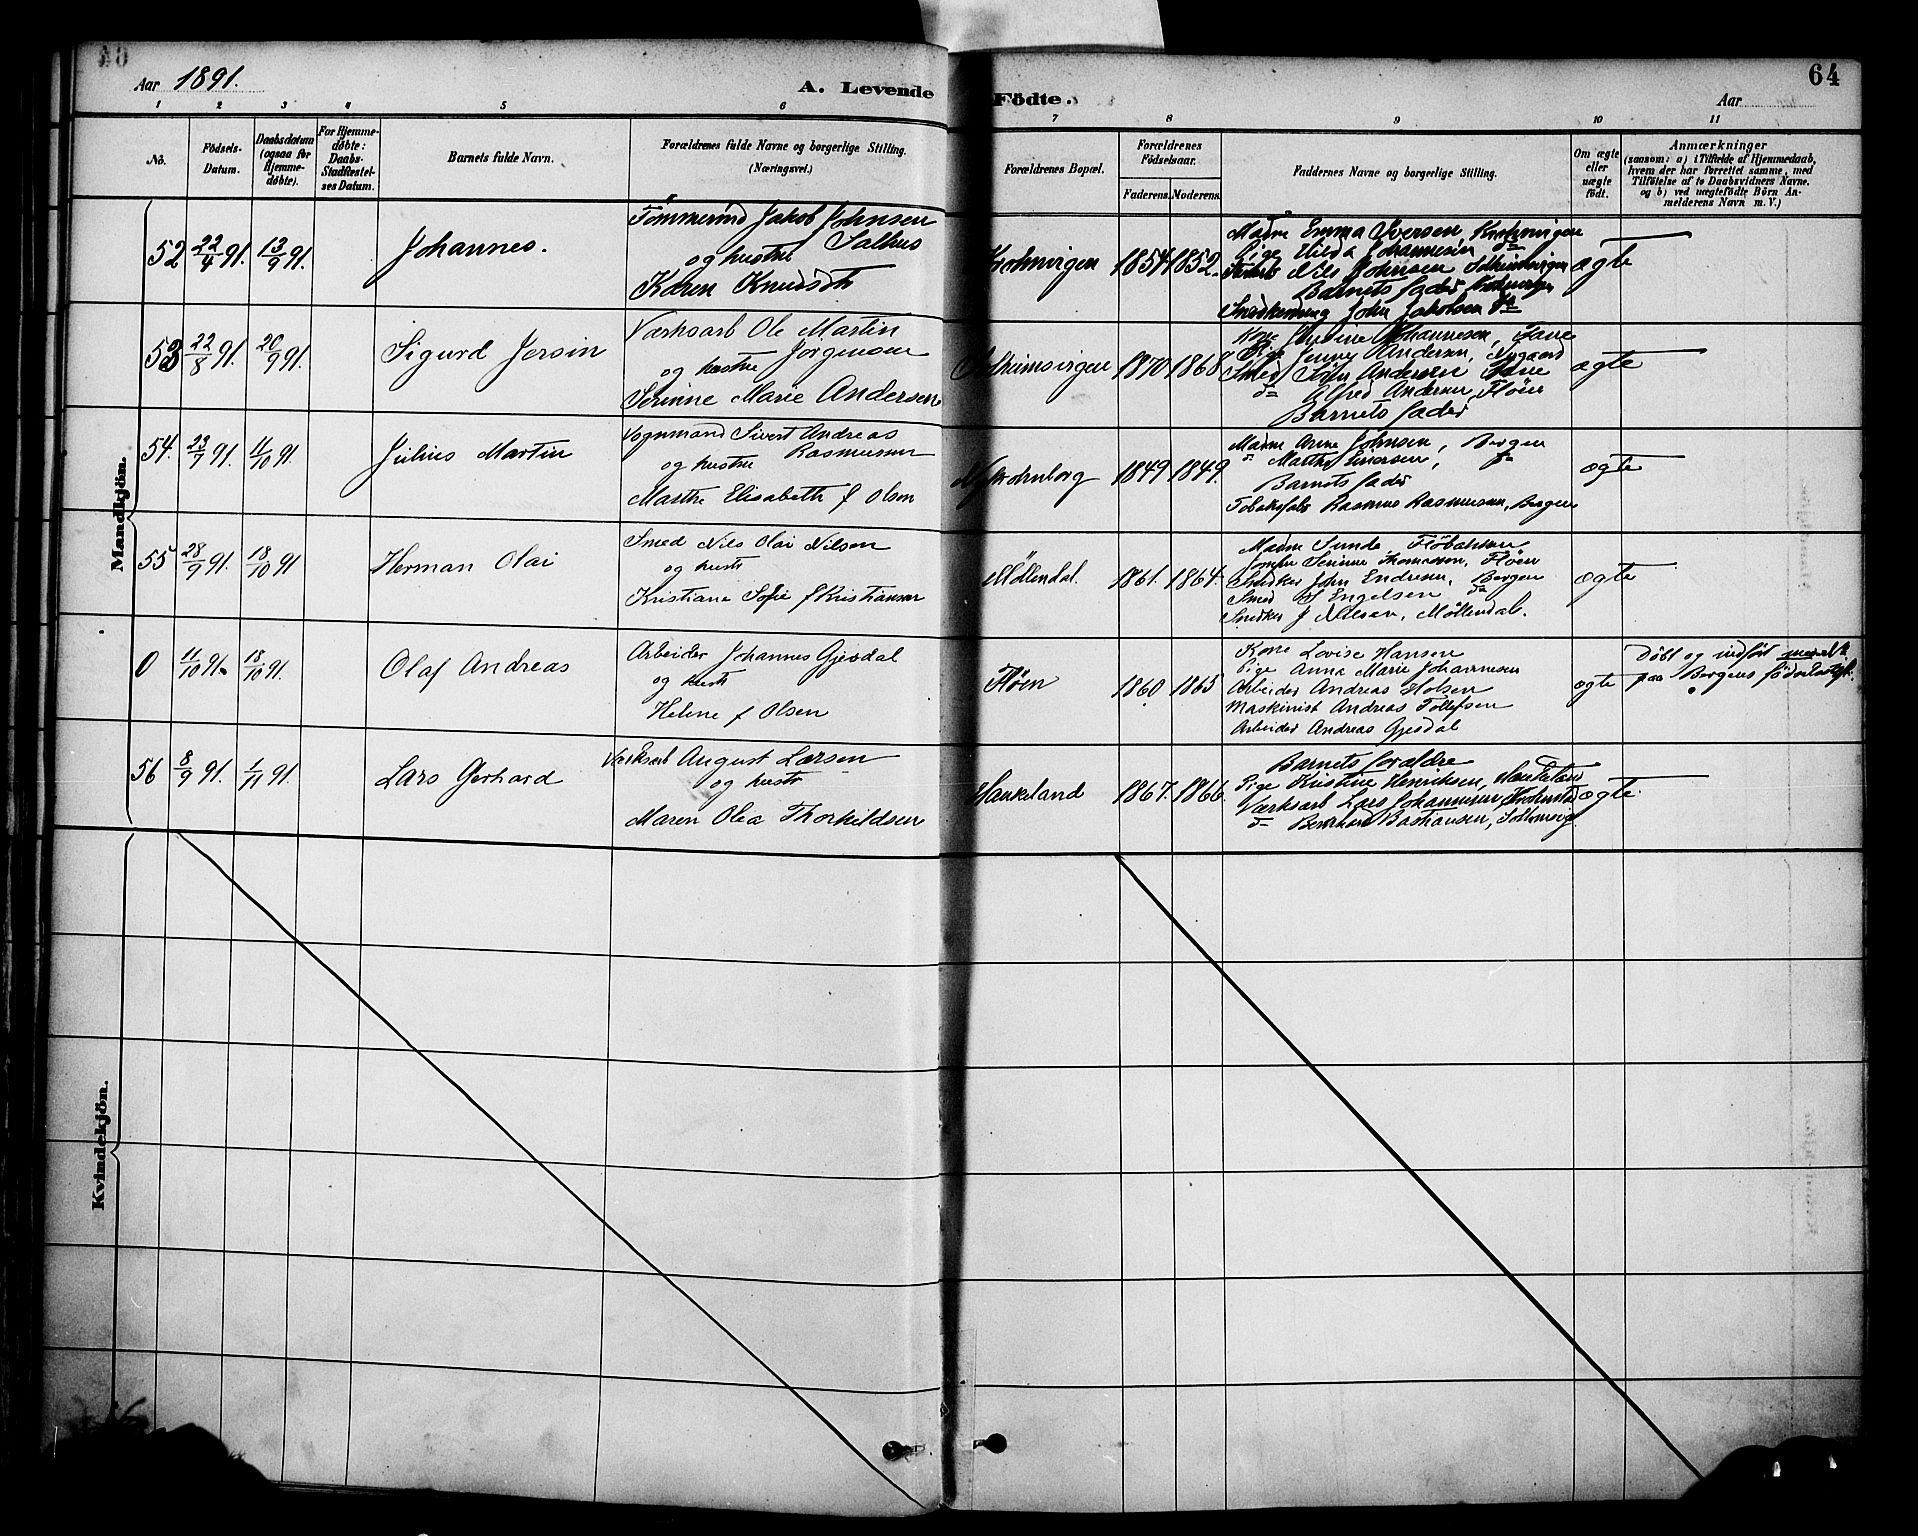 64
Aar 1891. A. Levende Födte. Aar
1 2 3 4 5 6 7 8 9 10 11
No. Födsels-Datum. Daabsdatum (ogsaa for Hjemmedöbte). For Hjemmedöbte: Daabs-Stadfæstelses Datum. Barnets fulde Navn. Forældrenes fulde Navne og borgerlige Stilling. (Næringsvei.) Forældrenes Bopæl. Forældrenes Födselsaar. Faderens. Moderens. Faddernes Navne og borgerlige Stilling. Om ægte eller uægte födt. Anmærkninger (saasom: a) i Tilfælde af Hjemmedaab, hvem der har forrettet samme, med Tilföielse af to Daabsvidners Navne, og b) ved uægtefödte Börn Anmelderens Navn m. V.)
Mandkjön.
52 22/4 91. 13/9 91. Johannes.
Tömmermd Jakob Johnsen
Salhus
og hustru
Karen Knudsdt
Krohnvigen 1854 1852.
Madm Emma Iversen, Krohnvigen
Pige Hilda Johannesen do
Nils Johnsen Solheimsvigen
Barnets fader Krohnvigen
John Jakobsen do
ægte
53 22/8 91. 20/9 91. Sigurd Jersin
Værksarb Ole Martin
Jörgensen
og hustru
Serinne Marie Andersen
Solheimsvigen 1870 1868
Kone Johannesen,
Pige Jenny Andersen, Nygaard
Smed Andersen
do Alfred Andersen, Flöen
Barnets fader
ægte
54. 23/7 91. 11/10 91. Julius Martin
Vognmand Sivert Andreas
Rasmussen
og hustru
Marthe Elisabeth f Olsen
Nykrohnborg 1849 1849.
Madm Anne Johnsen, Bergen
do Marthe Einersen, do
Barnets fader
Tobaksfab Rasmus Rasmussen, Bergen
ægte
55 28/9 91. 18/10 91 Herman Olai
Smed Nils Olai Nilsen
og hustr
Kristiane Sofie f Kristiansen
Möllendal. 1861. 1864.
Madm Sunde Flöbakken
Jomfr Serinne Thomassen, Flöen
Snedker John Endresen, Bergen
Smed Engelsen do
Snedker J Nilsen, Möllendal.
ægte
0 11/10 91. 18/10 91. Olaf Andreas
Arbeider Johannes Gjesdal
og hustr
Helene f Olsen
Flöen 1860. 1865
Kone Lovise Hansen
Pige Anna Marie Johannesen
Arbeider Andreas Holsen
Maskinist Andreas Tollefsen
Arbeider Andreas Gjesdal
ægte
Döbt og indfört
paa Bergens
56 8/9 91. 1/11 91. Lars Gerhard
Værksarb August Larsen
og hustr
Maren Olea Thorkildsen
Haukeland 1867. 1866.
Barnets forældre
Pige Kristine Henriksen, Haukeland
Værksarb Lars Johannesen, Krohnstad
do Bernhard Bastiansen, Solheimsvig.
ægte
Kvindekjön.